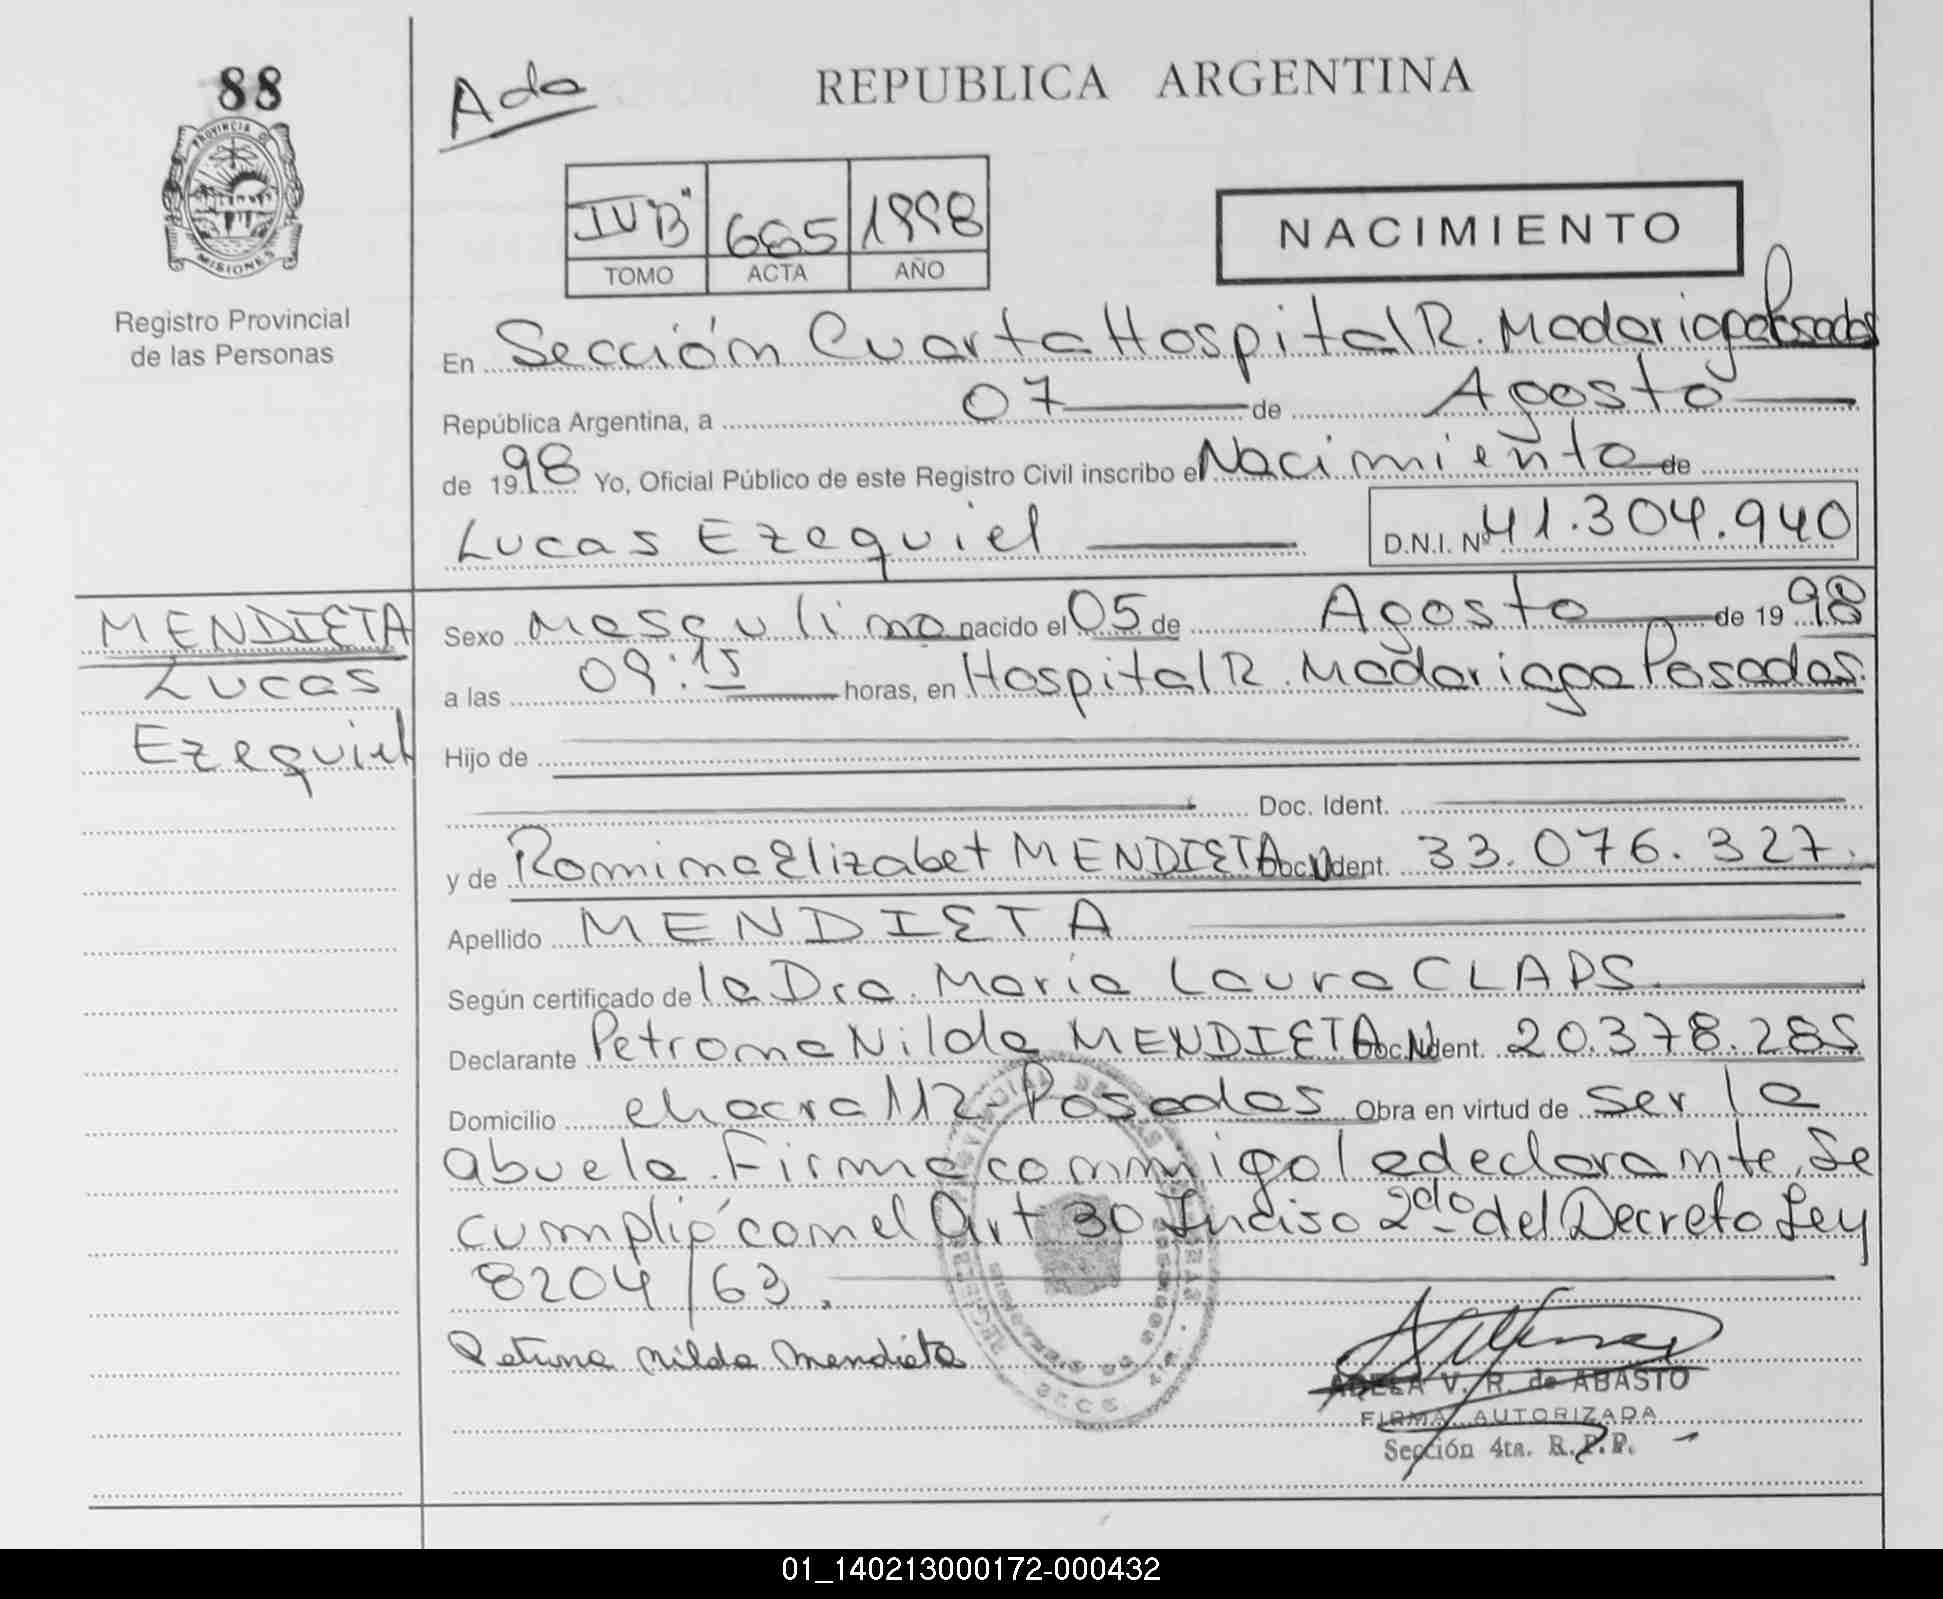 88
Ada
REPUBLICA ARGENTINA
PROVINCIA DE
MISIONES
Registro Provincial
de las Personas
IV"B" 665 1998
TOMO ACTA AÑO
NACIMIENTO
En Sección Cuarta Hospital R. Madariaga Posadas
República Argentina, a 07 de Agosto
de 19 98 Yo, Oficial Público de este Registro Civil inscribo el Nacimiento de
Lucas Ezequiel D.N.I. Nº 41.304.940
MENDIETA
Lucas
Ezequiel
Sexo Masculino nacido el 05 de Agosto de 19 98
a las 09:15 horas, en Hospital R. Madariaga Posadas.
Hijo de
Doc. Ident.
y de Romina Elizabet MENDIETA Doc. Ident. 33.076.327.
Apellido MENDIETA
Según certificado de la Dra. Maria Laura CLAPS
Declarante Petrona Nilda MENDIETA Doc. Ident. 20.378.285
Domicilio chacra 112-Posadas Obra en virtud de ser la
abuela. Firma conmigo la declarante. Se
cumplió con el Art 30 Inciso 2do del Decreto Ley
8204/63.
Petrona Nilda Mendieta
ADELA V. R. de ABASTO
FIRMA AUTORIZADA
Sección 4ta. R.P.P.
01_140213000172-000432